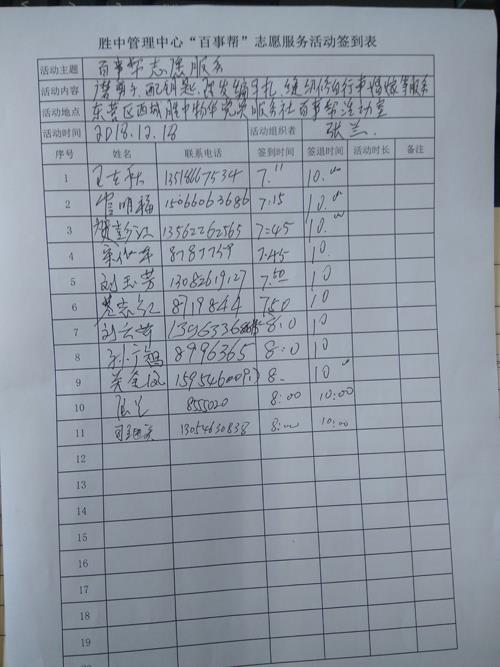 胜中管理中心“百事帮”志愿服务活动签到表
活动主题 百事帮志愿服务
活动内容 磨剪子、配钥匙、理发、缝纫、修自行车、等服务
活动地点 东营区西城胜中物华党员服务社百事帮活动室
活动时间 2018.12.18 活动组织者 张兰
序号 姓名 联系电话 签到时间 签退时间 活动时长 备注
1 13518667534 7.11 10.00
2 曹明福 15066063686 7:15 10.00
3 贺彭江 13562262565 7:45 10.00
4 8787759 7:45 10.
5 刘玉芳 13082619127 7.50 10
6 8719844 750 10
7 刘云芳 8:0 10
8 8996365 8:0 10
9 8. 10
10 张兰 8555020 8:00 10:00
11 13054630838 8:00 10:00
12
13
14
15
16
17
18
19